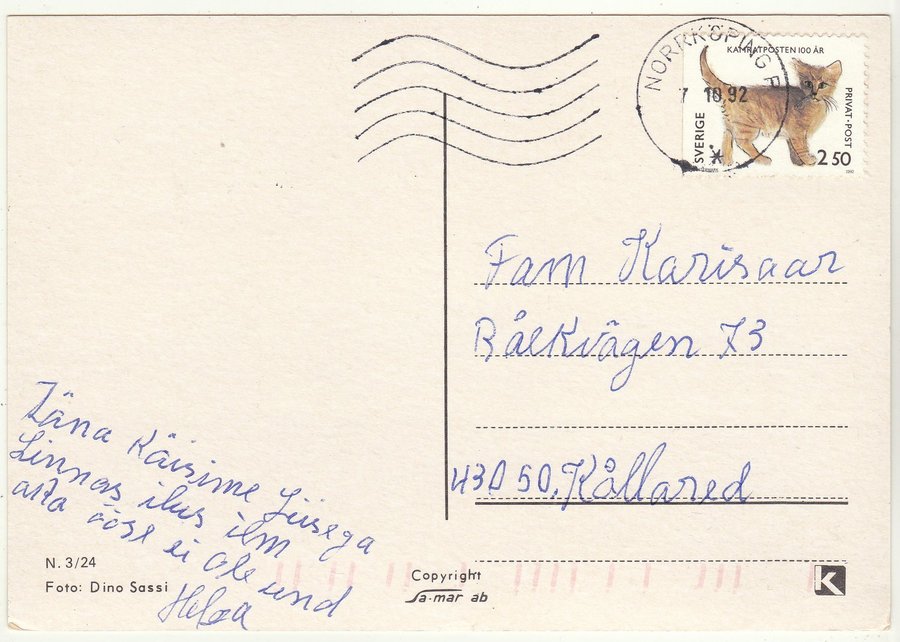 NORRKÖPING
7 10 92
KAMRATPOSTEN 100 ÅR
PRIVAT-POST
SVERIGE
2 50
1992
Fam Karisaar
Bålkvägen 73
430 50. Kållared
Täna Käisime Liisega
Linnas ilus ilm
aita öösse ei ole und
Helga
N. 3/24
Foto: Dino Sassi
Copyright
sa-mar ab
K